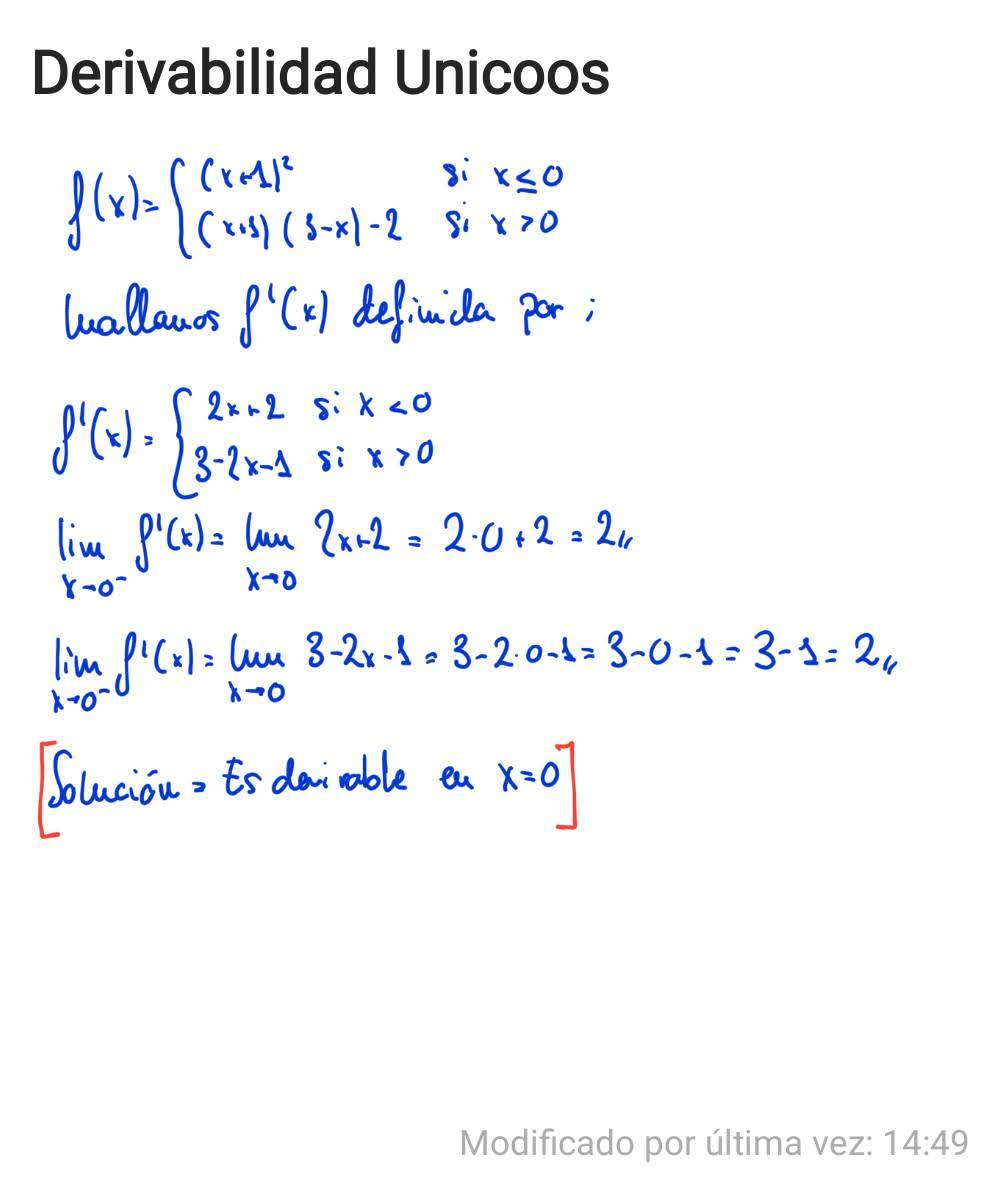 Derivabilidad Unicoos
f(x)= { (x+1)² si x≤0
(x+1)(3-x)-2 si x>0
hallamos f'(x) definida por;
f'(x)= { 2x+2 si x<0
3-2x-1 si x>0
lim x→0⁻ f'(x)= lim x→0 2x+2 = 2·0+2 = 2,,
lim x→0⁻ f'(x)= lim x→0 3-2x-1 = 3-2·0-1 = 3-0-1 = 3-1 = 2,,
[Solución = Es derivable en x=0]
Modificado por última vez: 14:49